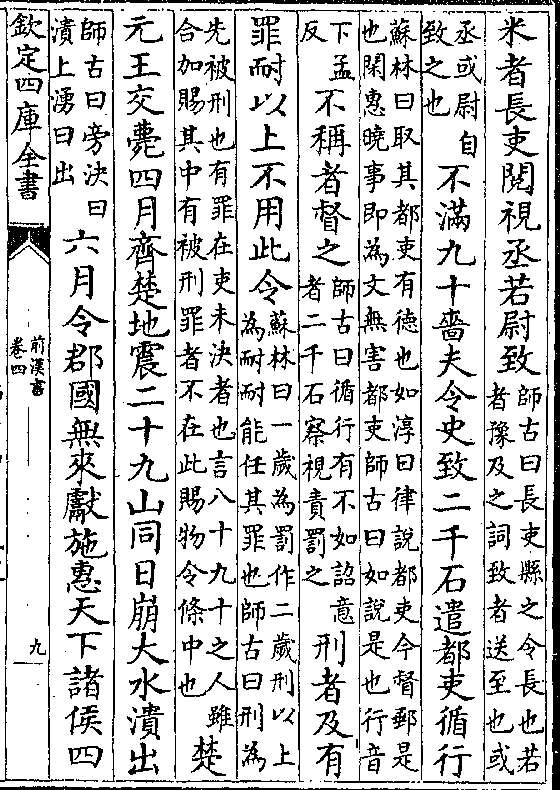 米者長吏閱視丞若尉致師古曰長吏縣之令長也若者豫及之詞致者送至也或
丞或尉自致之也不滿九十嗇夫令史致二千石遣都吏循行
蘇林曰取其都吏有德也如淳曰律說都吏今督郵是也閑惠曉事即為文無害都吏師古曰如說是也行音
下孟反不稱者督之師古曰循行有不如詔意者二千石察視責罰之刑者及有
罪耐以上不用此令蘇林曰一歲為罰作二歲刑以上為耐耐能任其罪也師古曰刑為
先被刑也有罪在吏未決者也言八十九十之人雖合加賜其中有被刑罪者不在此賜物令條中也楚
元王交薨四月齊楚地震二十九山同日崩大水潰出
師古曰旁決曰潰上湧曰出六月令郡國無來獻施惠天下諸侯四
欽定四庫全書
前漢書
卷四
九